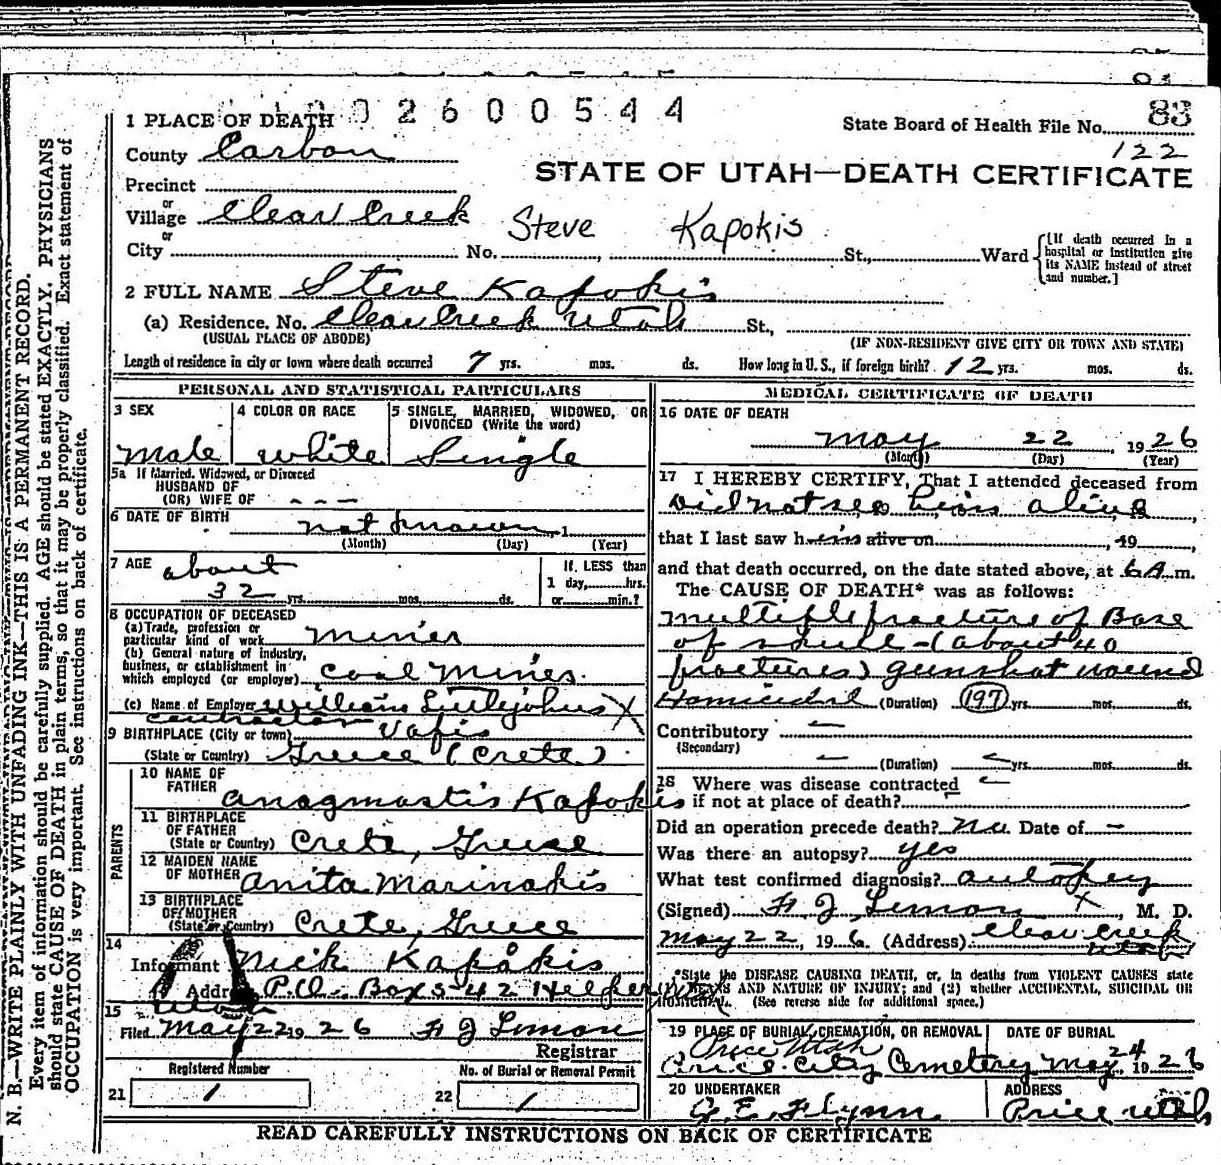 83
2600544
1 PLACE OF DEATH
State Board of Health File No. 83
122
County Carbon
STATE OF UTAH—DEATH CERTIFICATE
Precinct
or
Village Clear Creek
or
Steve Kapokis
City No. St., Ward
[If death occurred in a hospital or institution give its NAME instead of street and number.]
2 FULL NAME Steve Kapokis
(a) Residence. No. Clear Creek Utah St.,
(USUAL PLACE OF ABODE) (IF NON-RESIDENT GIVE CITY OR TOWN AND STATE)
Length of residence in city or town where death occurred 7 yrs. mos. ds. How long in U. S., if foreign birth? 12 yrs. mos. ds.
PERSONAL AND STATISTICAL PARTICULARS
3 SEX 4 COLOR OR RACE 5 SINGLE, MARRIED, WIDOWED, OR DIVORCED (Write the word)
Male white Single
5a If Married, Widowed, or Divorced
HUSBAND OF
(OR) WIFE OF - - -
6 DATE OF BIRTH not known 1
(Month) (Day) (Year)
7 AGE about If LESS than
32 yrs. mos. ds. 1 day, hrs. or min.?
8 OCCUPATION OF DECEASED
(a) Trade, profession or particular kind of work miner
(b) General nature of industry, business, or establishment in which employed (or employer) coal mines.
(c) Name of Employer William Littlejohns X
contractor
9 BIRTHPLACE (City or town) Vafis
(State or Country) Greece (Crete).
PARENTS
10 NAME OF FATHER Anagmostis Kapokis
11 BIRTHPLACE OF FATHER (State or Country) Crete, Greece
12 MAIDEN NAME OF MOTHER Anita Marinakis
13 BIRTHPLACE OF MOTHER (State or Country) Crete, Greece
14 Informant Nick Kapakis
Address P.O. Box 542 Helper
Utah
15 Filed May 22 1926 F J Lemon
Registrar
Registered Number No. of Burial or Removal Permit
21 1 22 1
MEDICAL CERTIFICATE OF DEATH
16 DATE OF DEATH
May 22 1926
(Month) (Day) (Year)
17 I HEREBY CERTIFY, That I attended deceased from
Did not see him alive,
that I last saw him alive on , 19 ,
and that death occurred, on the date stated above, at 6 A. m.
The CAUSE OF DEATH* was as follows:
multiple fracture of Base
of skull - (about 40
fractures) gunshot wound
Homicidal (Duration) (197) yrs. mos. ds.
Contributory -
(Secondary)
- (Duration) - yrs. mos. ds.
18 Where was disease contracted -
if not at place of death?
Did an operation precede death? No Date of -
Was there an autopsy? yes
What test confirmed diagnosis? autopsy
(Signed) F J Lemon X, M. D.
May 22, 1926. (Address) Clear Creek
Utah
*State the DISEASE CAUSING DEATH, or, in deaths from VIOLENT CAUSES state MEANS AND NATURE OF INJURY; and (2) whether ACCIDENTAL, SUICIDAL OR HOMICIDAL. (See reverse side for additional space.)
19 PLACE OF BURIAL, CREMATION, OR REMOVAL DATE OF BURIAL
Price Utah
Price City Cemetery May 24 1926
20 UNDERTAKER ADDRESS
G. E. Flynn Price Utah
N. B.—WRITE PLAINLY WITH UNFADING INK—THIS IS A PERMANENT RECORD.
Every item of information should be carefully supplied. AGE should be stated EXACTLY. PHYSICIANS
should state CAUSE OF DEATH in plain terms, so that it may be properly classified. Exact statement of
OCCUPATION is very important. See instructions on back of certificate.
READ CAREFULLY INSTRUCTIONS ON BACK OF CERTIFICATE